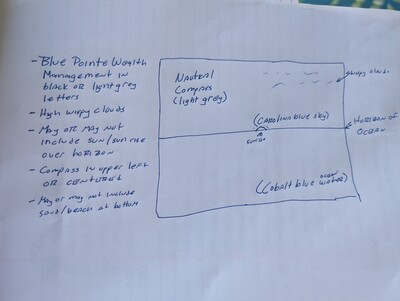 - Blue Pointe Wealth
Management in
black or light grey
letters
- High wispy clouds
- May or may not
include sun/sunrise
over horizon
- Compass in upper left
or centered
- May or may not include
sand/beach at bottom
Nautical
Compass
(light grey)
wispy clouds
(Carolina blue sky)
sunrise
Horizon of
Ocean
ocean
(Cobalt blue water)